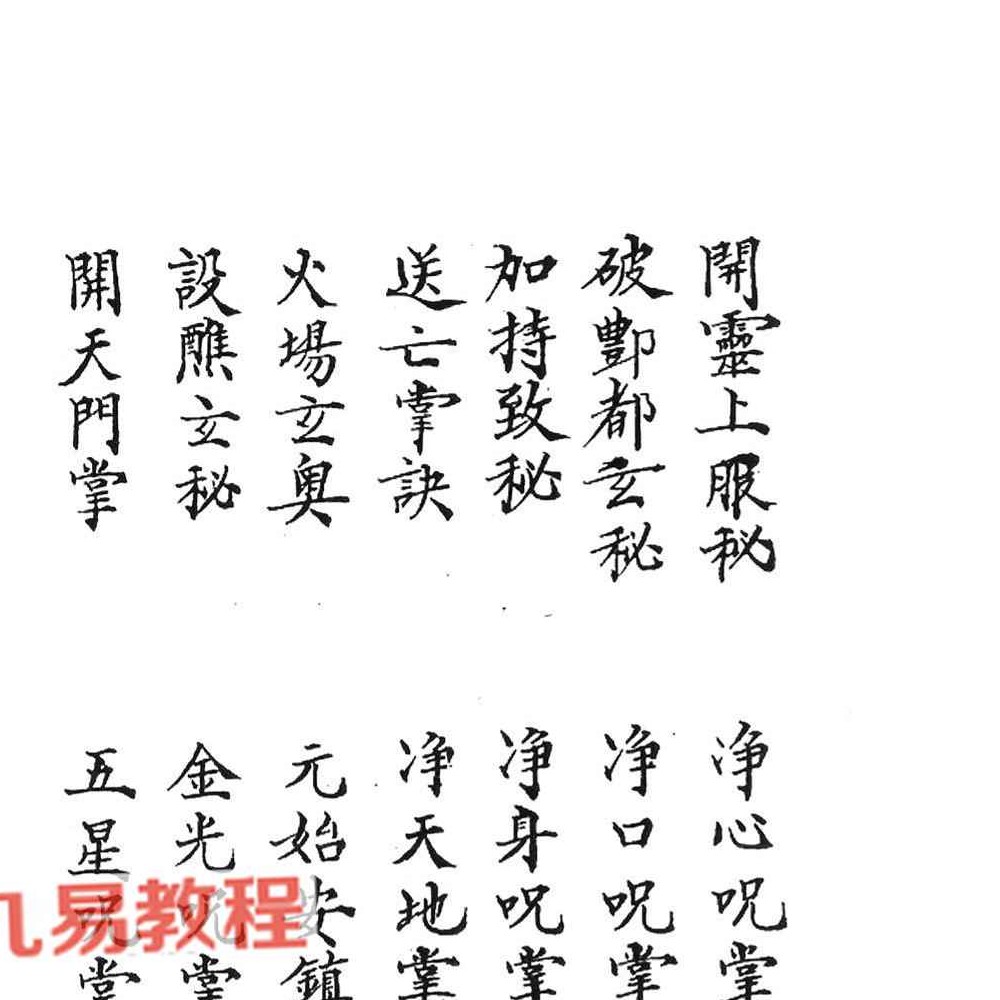 開靈上服秘
破酆都玄秘
加持致秘
送亡掌訣
火場玄奥
設醮玄秘
開天門掌
净心呪掌
净口呪掌
净身呪掌
净天地掌
元始安鎮
金光呪掌
五星呪掌
易教程